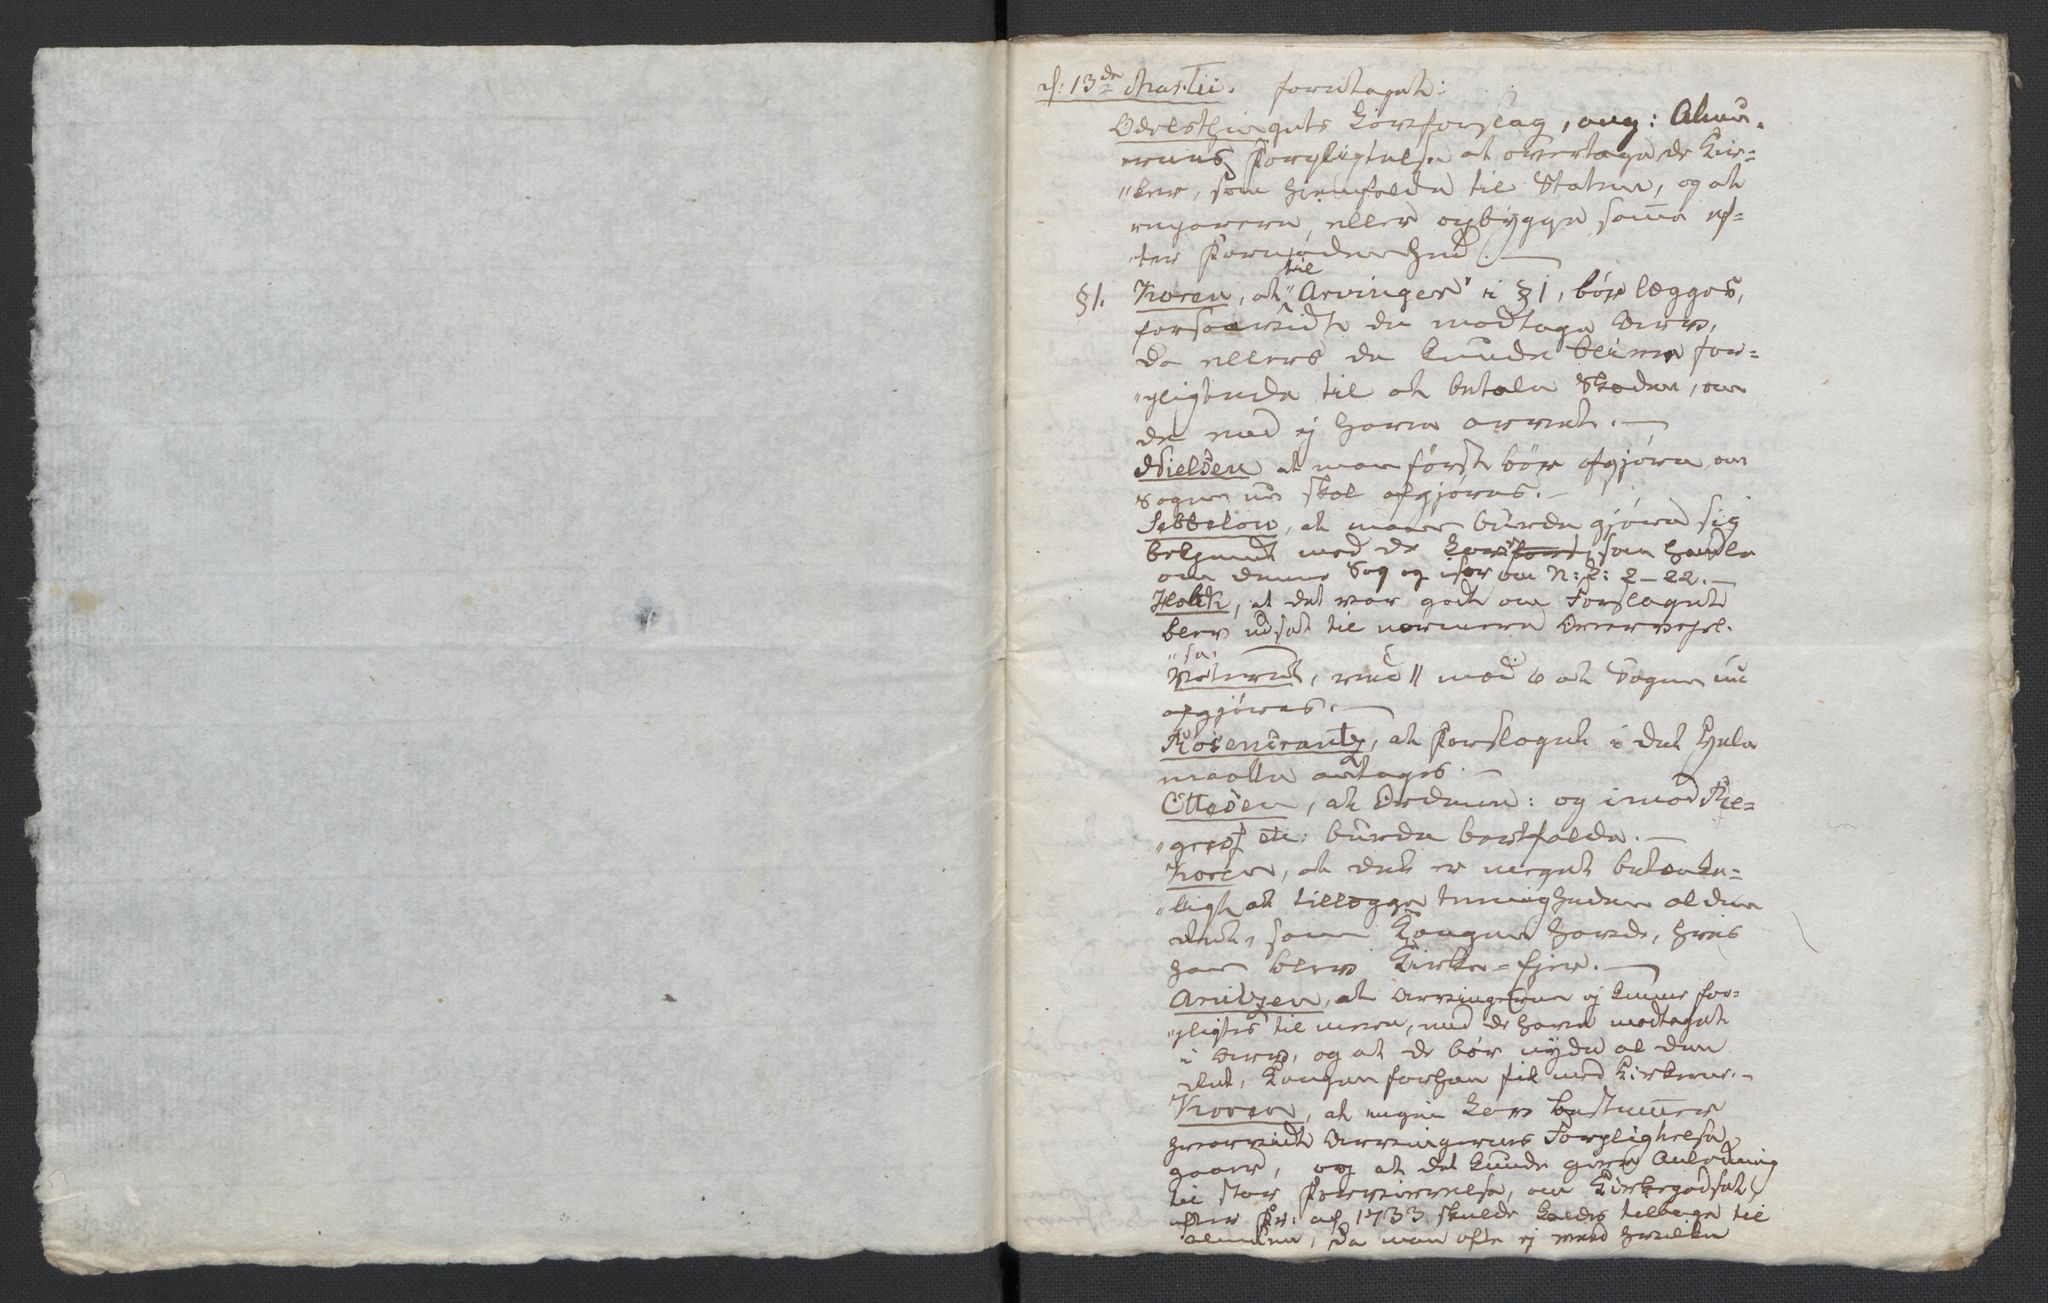 d: 13de Martii. foretaget:
Odelsthingets Lovforslag, ang: Almu-
ens Forpligtelse at overtage de Kir=
"ker, som hiemfalde til Staten, og at
reparere, eller opbygge samme ef=
"ter Fornødenhed. —
§1. Koren, at "til Arvinger" i §1, bør lægges,
forsaavidt de modtage Arv,
da ellers de kunde blive for=
"pligtede til at betale Skaden, om
de end ej have arvet. —
Nielsen at man først bør afgjøre om
Sagen nu skal afgjøres. —
Sibbelow, at man burde gjøre sig
bekjendt med de Love som handle
om denne Sag og især om N: L: 2-22. —
Holck, at det var godt om Forslaget
blev udsat til nærmere Overvejel.
"se.
Voteret, med 11 mod 6 at Sagen nu
afgjøres. —
Rosencrantz, at Forslaget i det Hele
maatte antages. —
Ottesen, at Ordene: og imod Re=
"gres etc: burde bortfalde. —
Koren, at det er meget betænke=
"ligt at tillægge Menigheden al den
Ret, som Kongen havde, hvis
han blev Kirke=Ejer. —
Arntzen, at Arvingerne ej kunne for=
"pligtes til mere, end de have modtaget
i Arv, og at de bør nyde al den
Ret, Kongen forhen fik med Kirkerne. —
Koren, at ingen Lov bestemmer
hvorvidt Arvingernes Forpligtelse
gaaer, og at det kunde give Anledning
til stor Forvirrelse, om Kirkegodset
efter Fr: af 1733 skulde kaldes tilbage til
, da man ofte ej veed hvilken